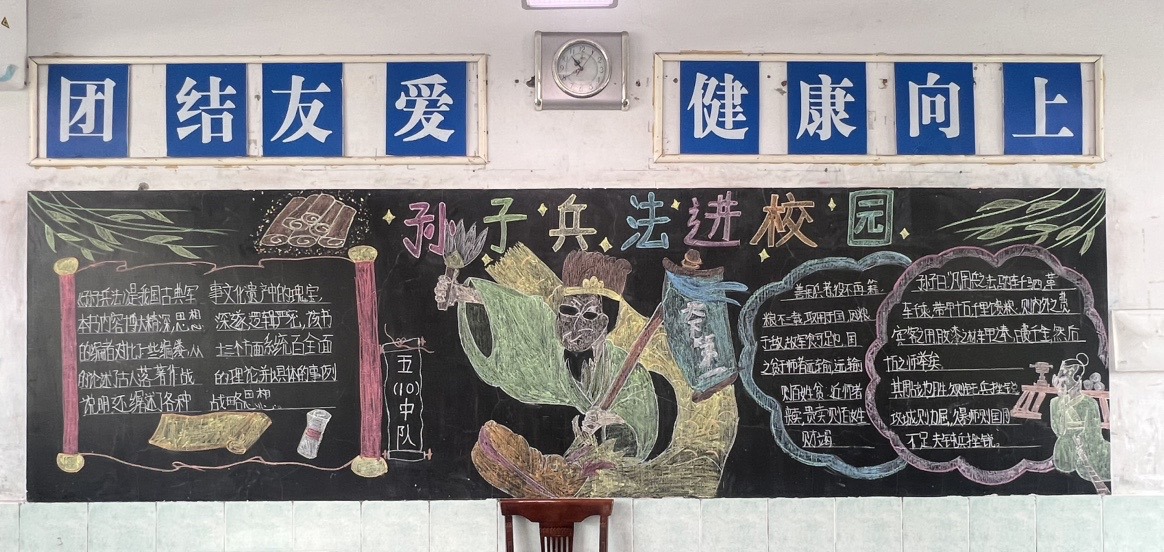 团结友爱
健康向上
孙子兵法进校园
孙子兵法是我国古典军 事文化遗产中的瑰宝,
本书内容博大精深,思想 深邃逻辑严密,该书
的编者对 十三个方面系统而全面
的论述了古人 著作战 的理论并以具体的事例
说明还编述了各种 战略思想
五(10)中队
善用兵者,役不再籍,
粮不三载,取用于国,因粮
于敌,故军食可足也,国
之贫于师者远输,远输
则百姓贫 近师者
贵卖,贵卖则百姓
财竭
孙子曰:凡用兵之法,驰车千驷,革
车千乘,带甲十万,千里馈粮,则内外之费
宾客之用,胶漆之材,车甲之奉,日费千金,然后
十万之师举矣
其用战也胜,久则钝兵挫锐
攻城则力屈,久暴师则国用
不足 夫钝兵挫锐